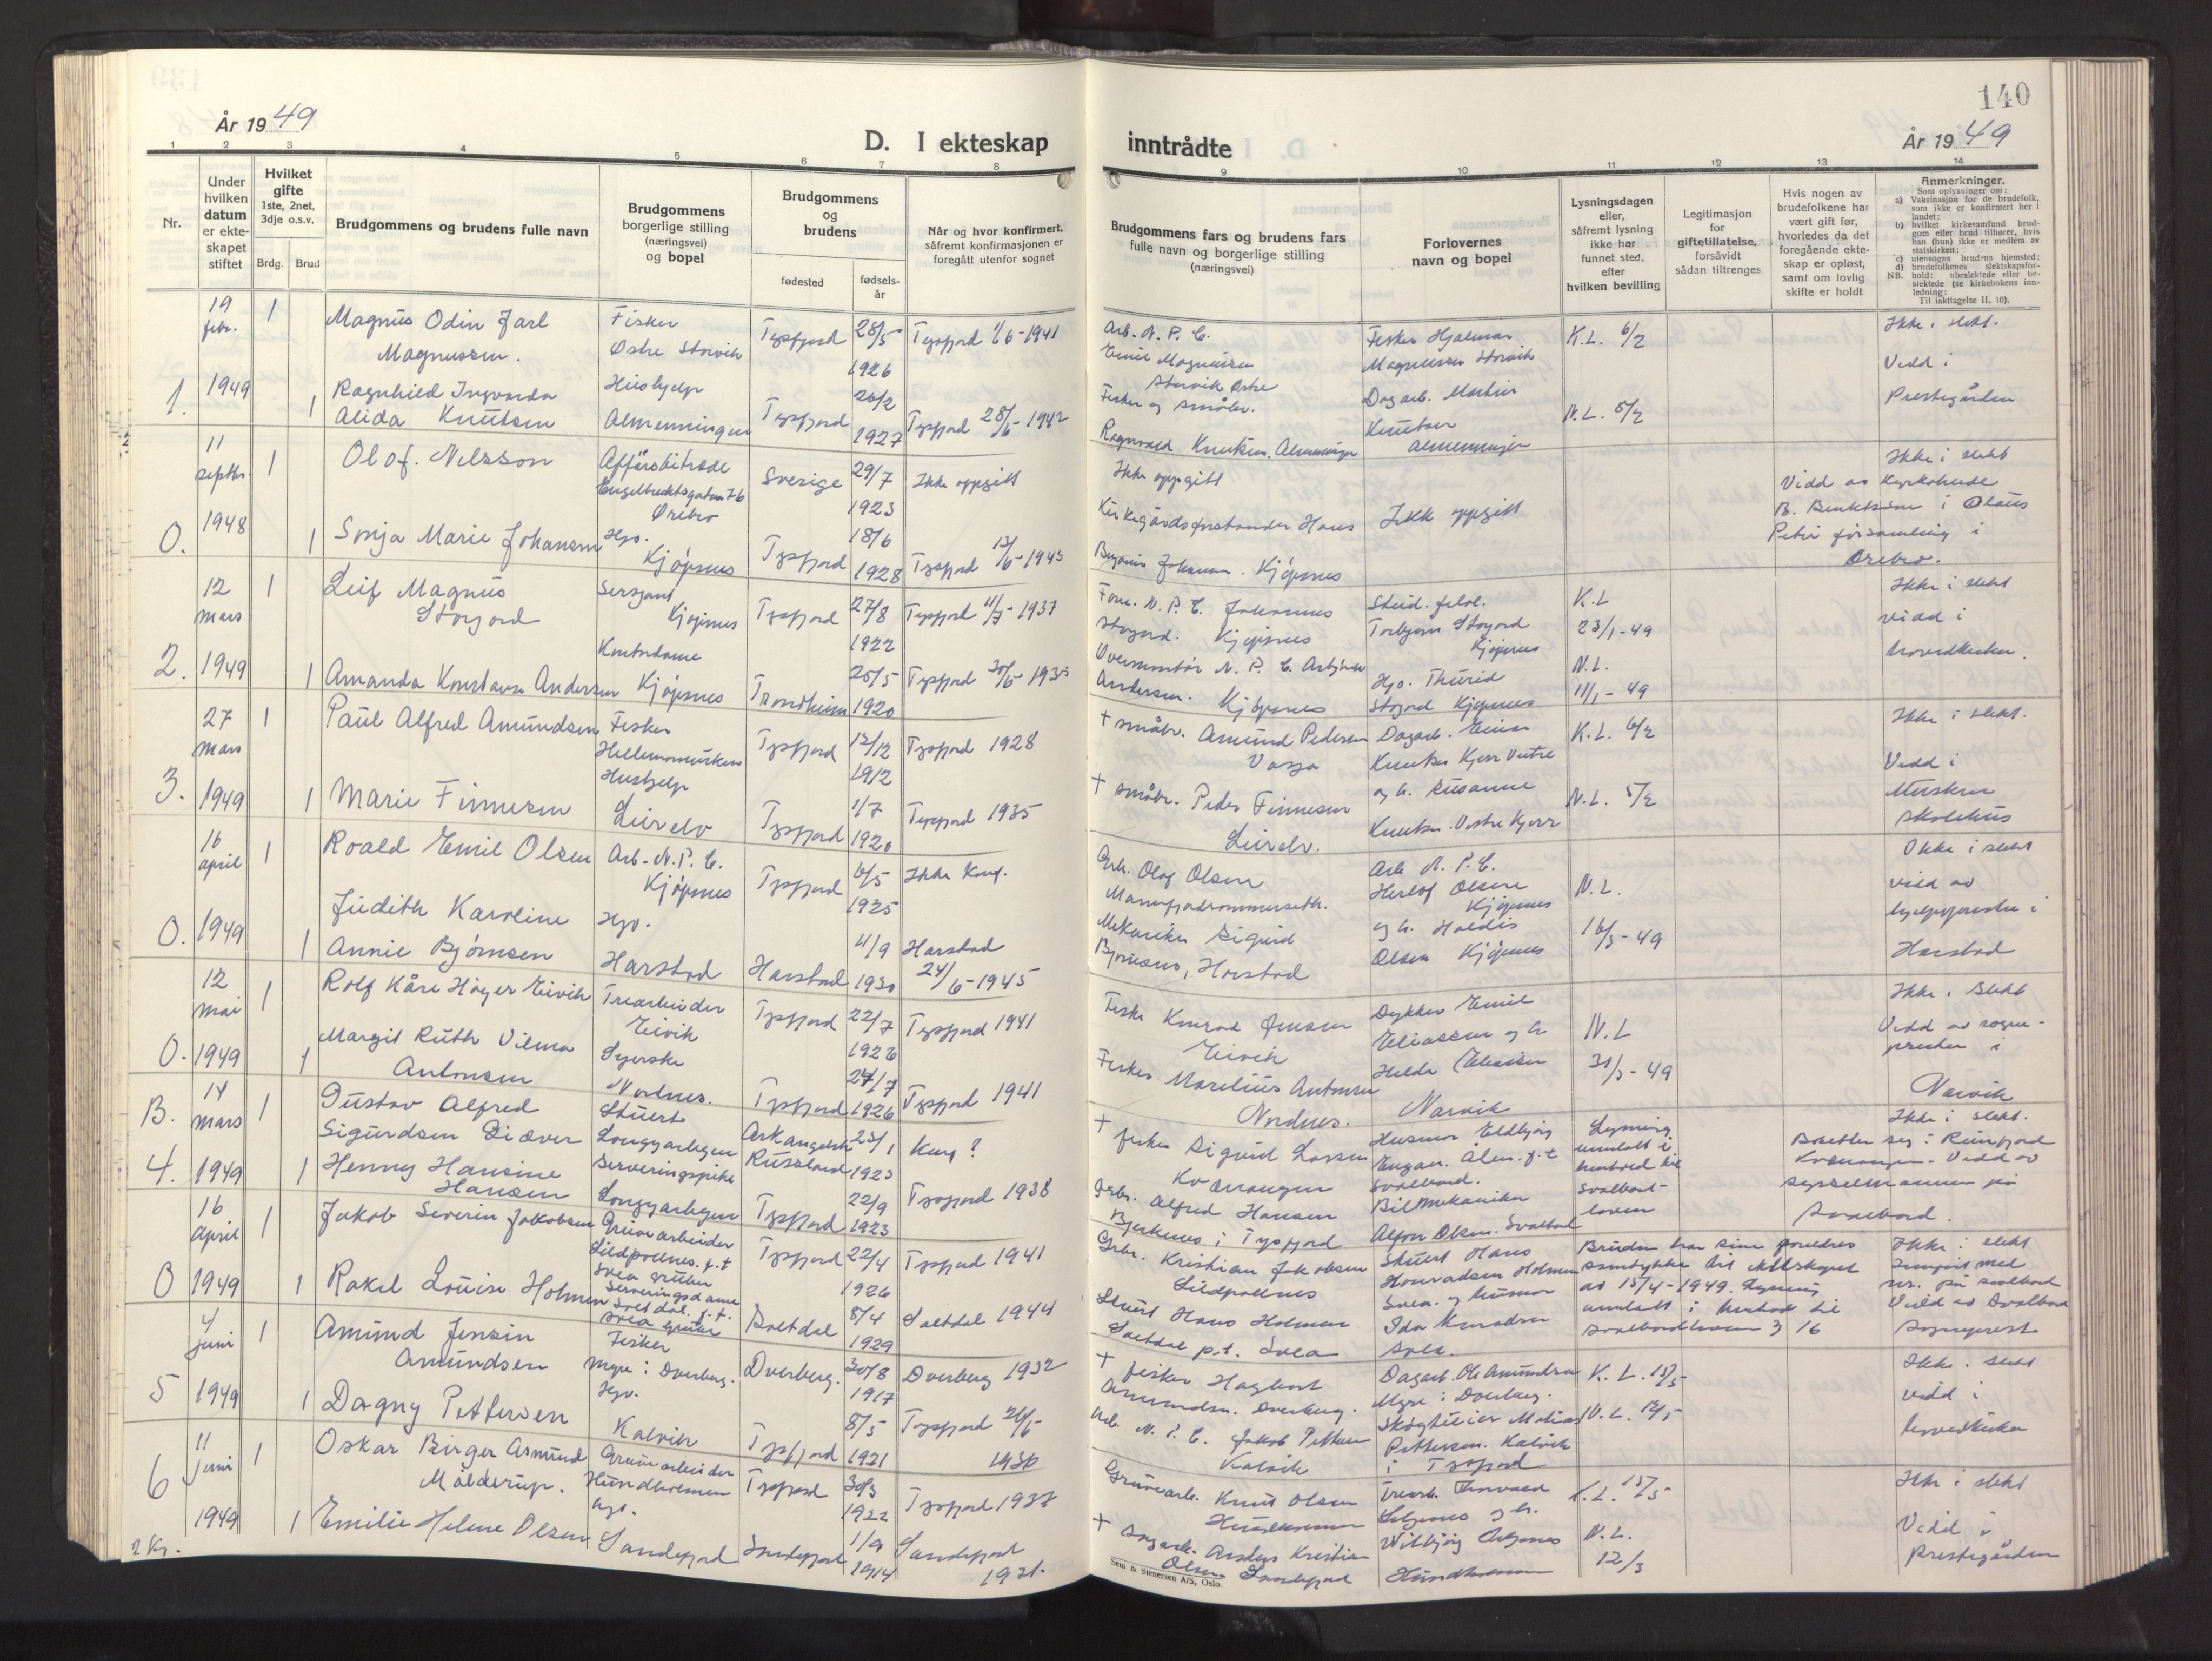 140
År 19 49
D. I ekteskap
inntrådte
År 19 49
1 2 3 4 5 6 7 8
9 10 11 12 13 14
Nr.
Under
hvilken
datum
er ekte-
skapet
stiftet
Hvilket
gifte
1ste, 2net,
3dje o.s.v.
Brdg. Brud
Brudgommens og brudens fulle navn
Brudgommens
borgerlige stilling
(næringsvei)
og bopel
Brudgommens
og
brudens
fødested
fødsels-
år
Når og hvor konfirmert,
såfremt konfirmasjonen er
foregått utenfor sognet
Brudgommens fars og brudens fars
fulle navn og borgerlige stilling
(næringsvei)
Forlovernes
navn og bopel
Lysningsdagen
eller,
såfremt lysning
ikke har
funnet sted,
efter
hvilken bevilling
Legitimasjon
for
giftetillatelse,
forsåvidt
sådan tiltrenges
Hvis nogen av
brudefolkene har
vært gift før,
hvorledes da det
foregående ekte-
skap er opløst,
samt om lovlig
skifte er holdt
Anmerkninger.
Som oplysninger om:
a) Vaksinasjon for de brudefolk,
som ikke er konfirmert her i
landet;
b) hvilket kirkesamfund brud-
gom eller brud tilhører, hvis
han (hun) ikke er medlem av
statskirken;
c) utensogns brudens hjemsted;
d) brudefolkenes slektskapsfor-
NB. hold: ubeslektede eller be-
slektede (se kirkebokens inn-
ledning:
Til iakttagelse II, 10).
1.
19
febr.
1949
1
Magnus Odin Jarl
Magnussen.
Fisker
Østre Storvik
Tysfjord
28/5
1926
Tysfjord 1/6-1941
1
Ragnhild Ingvarda
Alida Knutsen
Hushjelp
Almenningen
Tysfjord
26/2
1927
Tysfjord 28/6-1942
Arb. N. P. C.
Emil Magnussen
Storvik Østre
Fisker og småbr.
Ragnvald Knutsen. Almenningen
Fisker Hjalmar
Magnussen Storvik
Dagarb. Martin
Knutsen
Almenningen
K.L. 6/2
N.L. 5/2
Ikke i slekt.
Viedd i
Prestegården
0.
11
septbr.
1948
1
Olof. Nilsson
Affärsbiträde
Engelbrektsgatan 76
Örebro
Sverige
29/7
1923
Ikke oppgitt
1
Sonja Marie Johansen
Hjv.
Kjøpsnes
Tysfjord
18/6
1928
Tysfjord 13/6-1943
Ikke oppgitt
Kirkegårdsforstander Hans
Benjamin Johansen. Kjøpsnes
Ikke oppgitt
Ikke i slekt
Vidd av Kyrkoherde
i Olaus
Petri församling i
Örebro.
2.
12
mars
1949
1
Leif Magnus
Storjord
Sersjant
Kjøpsnes
Tysfjord
27/8
1922
Tysfjord 11/7-1937
1
Amanda Konstanse Andersen
Kontordame
Kjøpsnes
Trondheim
25/5
1920
Tysfjord 30/6-1935
Form. N. P. C. Johannes
Storjord. Kjøpsnes
Overmontør N. P. C. Asbjørn
Andersen. Kjøpsnes
Stud. filol.
Torbjørn Storjord
Kjøpsnes
Hjv. Thurid
Storjord Kjøpsnes
K.L
23/1-49
N.L.
11/1-49
Ikke i slekt
vidd i
hovedkirken.
3.
27
mars
1949
1
Paul Alfred Amundsen
Fisker
Hellemomusken
Tysfjord
12/12
1912
Tysfjord 1928
1
Marie Finnesen
Hushjelp
Leirelv
Tysfjord
1/7
1920
Tysfjord 1935
† småbr. Amund Pedersen
Vasja
† småbr. Peder Finnesen
Leirelv.
Dagarb. Einar
Knutsen Kjerr Vestre
og h. Susanne
Knutsen. Vestre Kjerr
K.L. 6/2
N.L. 5/2
Ikke i slekt.
Vidd i
Musken
skolehus
0.
16
april
1949
1
Roald Emil Olsen
Arb. N.P.C.
Kjøpsnes
Tysfjord
6/5
1925
Ikke Konf.
1
Judith Karoline
Annie Bjørnsen
Hjv.
Harstad
Harstad
11/9
1930
Harstad
24/6-1945
Arb. Olaf Olsen
Mekaniker Sigurd
Bjørnsen, Harstad
Arb N. P. C.
Herlof Olsen
Kjøpsnes
og h. Haldis
Olsen Kjøpsnes
N.L.
16/3-49
Ikke i slekt
vidd av
hjelpepresten i
Harstad
0.
12
mai
1949
1
Rolf Kåre Høyer Eivik
Trearbeider
Eivik
Tysfjord
22/7
1926
Tysfjord 1941
1
Margit Ruth Vilma
Antonsen
Syerske
Nordnes.
Tysfjord
27/7
1926
Tysfjord 1941
Fisker Konrad Jensen
Eivik
Fisker Marelius Antonsen
Nordnes.
Dykker Emil
Eliassen og h
Helda Eliassen
Narvik
N.L
31/3-49
Ikke i slekt
Vidd av sogne-
presten i
Narvik
B.
4.
14
mars
1949
1
Gustav Alfred
Sigurdsen Diæver
Stuert
Longyearbyen
Arkangelsk
Russland
23/1
1923
Konf ?
1
Henny Hansine
Hansen
Serveringspike
Longyearbyen
Tysfjord
22/9
1923
Tysfjord 1938
† fisker Sigurd Larsen
Kvænangen
Grbr. Alfred Hansen
Bjerknes i Tysfjord
Husmor Eldbjørg
Svalbard.
Bilmekaniker
Alfon Olsen. Svalbard
Lysning
unnlatt i
henhold til
Svalbard-
loven
Ikke i slekt.
Bosetter seg i Reinfjord
Kvænangen. Vidd av
sysselmannen på
Svalbard.
0
16
April
1949
1
Jakob Severin Jakobsen
Gruvearbeider
Sildpollnes. p.t
Svea gruber
Tysfjord
22/4
1926
Tysfjord 1941
1
Rakel Louise Holmen
Serveringsdame
Saltdal. p.t.
Svea gruber
Saltdal
8/4
1929
Saltdal 1944
Grbr. Kristian Jakobsen
Sildpollnes
Stuert Hans Holmen
Saltdal p.t. Svea
Stuert Hans
Konradsen Holmen
Svea. og husmor
Ida Konradsen
Svea.
Bruden har sine foreldres
samtykke til ekteskapet
av 15/4-1949. Lysning
unnlatt i henhold til
Svalbardloven § 16
Ikke i slekt
nr. på Svalbard
Vidd av Svalbard
Sogneprest
5
4
juni
1949
1
Amund Jensin
Amundsen
Fisker
Myre i Dverberg.
Dverberg.
30/8
1917
Dverberg 1932
1
Dagny Pettersen
Hjv.
Kalvik
Tysfjord
8/5
1921
Tysfjord 26/5
1936
† fisker Hagbart
Amundsen. Dverberg.
Arb. N. P. C. Jakob Pettersen
Kalvik
Dagarb. Ole Amundsen
Myre i Dverberg.
Skoghteier Matias
Pettersen. Kalvik
i Tysfjord
K. L. 13/5
N. L. 12/5
Ikke i slekt
vidd i
hovedkirken
6
11
juni
1949
1
Oskar Birger Asmund
Målderup.
Gruvearbeider
Hundholmen
Tysfjord
30/3
1922
Tysfjord 1937
1
Emilie Helene Olsen
Hjv.
Sandefjord
Sandefjord
1/9
1914
Sandefjord
1931.
Gruvearb. Knut Olsen
Hundholmen
† Dagarb. Anders Kristian
Olsen Sandefjord
Hundholmen
K.L. 13/5
N.L.
12/3
Ikke i slekt
Vidd i
prestegården
2 Kr.
Sem & Stenersen A/S, Oslo.